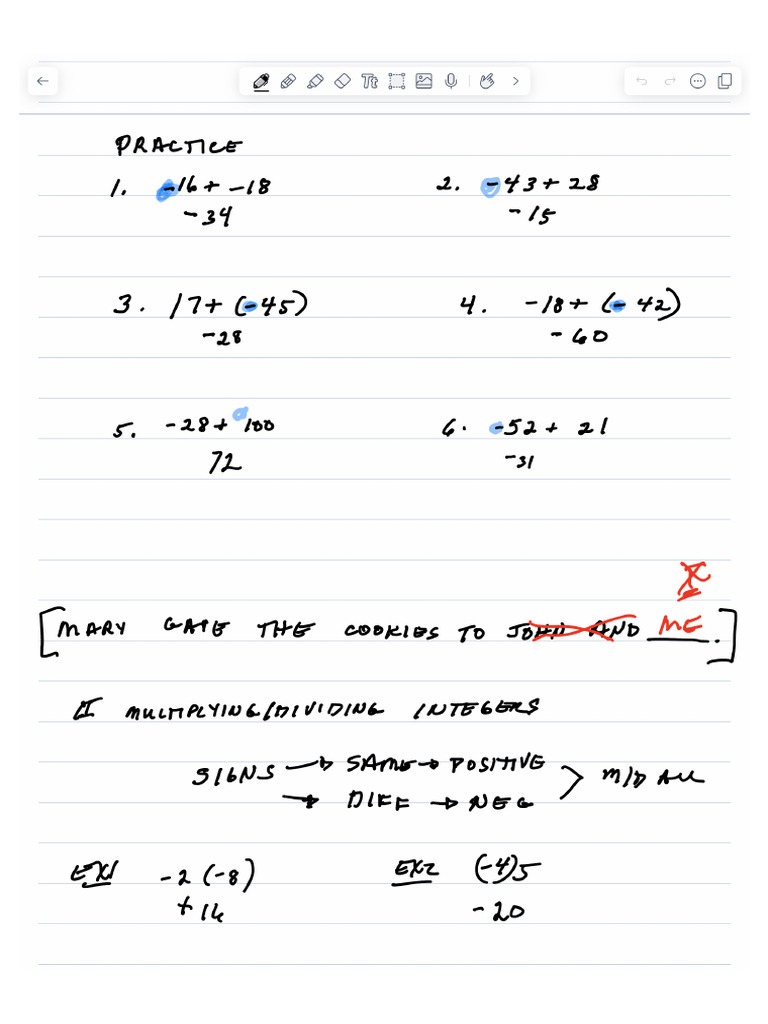 Tt
PRACTICE
1. -16 + -18 2. -43 + 28
-34 -15
3. 17 + (-45) 4. -18 + (-42)
-28 -60
5. -28 + 100 6. -52 + 21
72 -31
[MARY GAVE THE COOKIES TO JOHN AND ME.]
II MULTIPLYING/DIVIDING INTEGERS
SIGNS → SAME → POSITIVE > M/D ALL
→ DIFF → NEG
EX1 -2 (-8) EX2 (-4)5
+16 -20